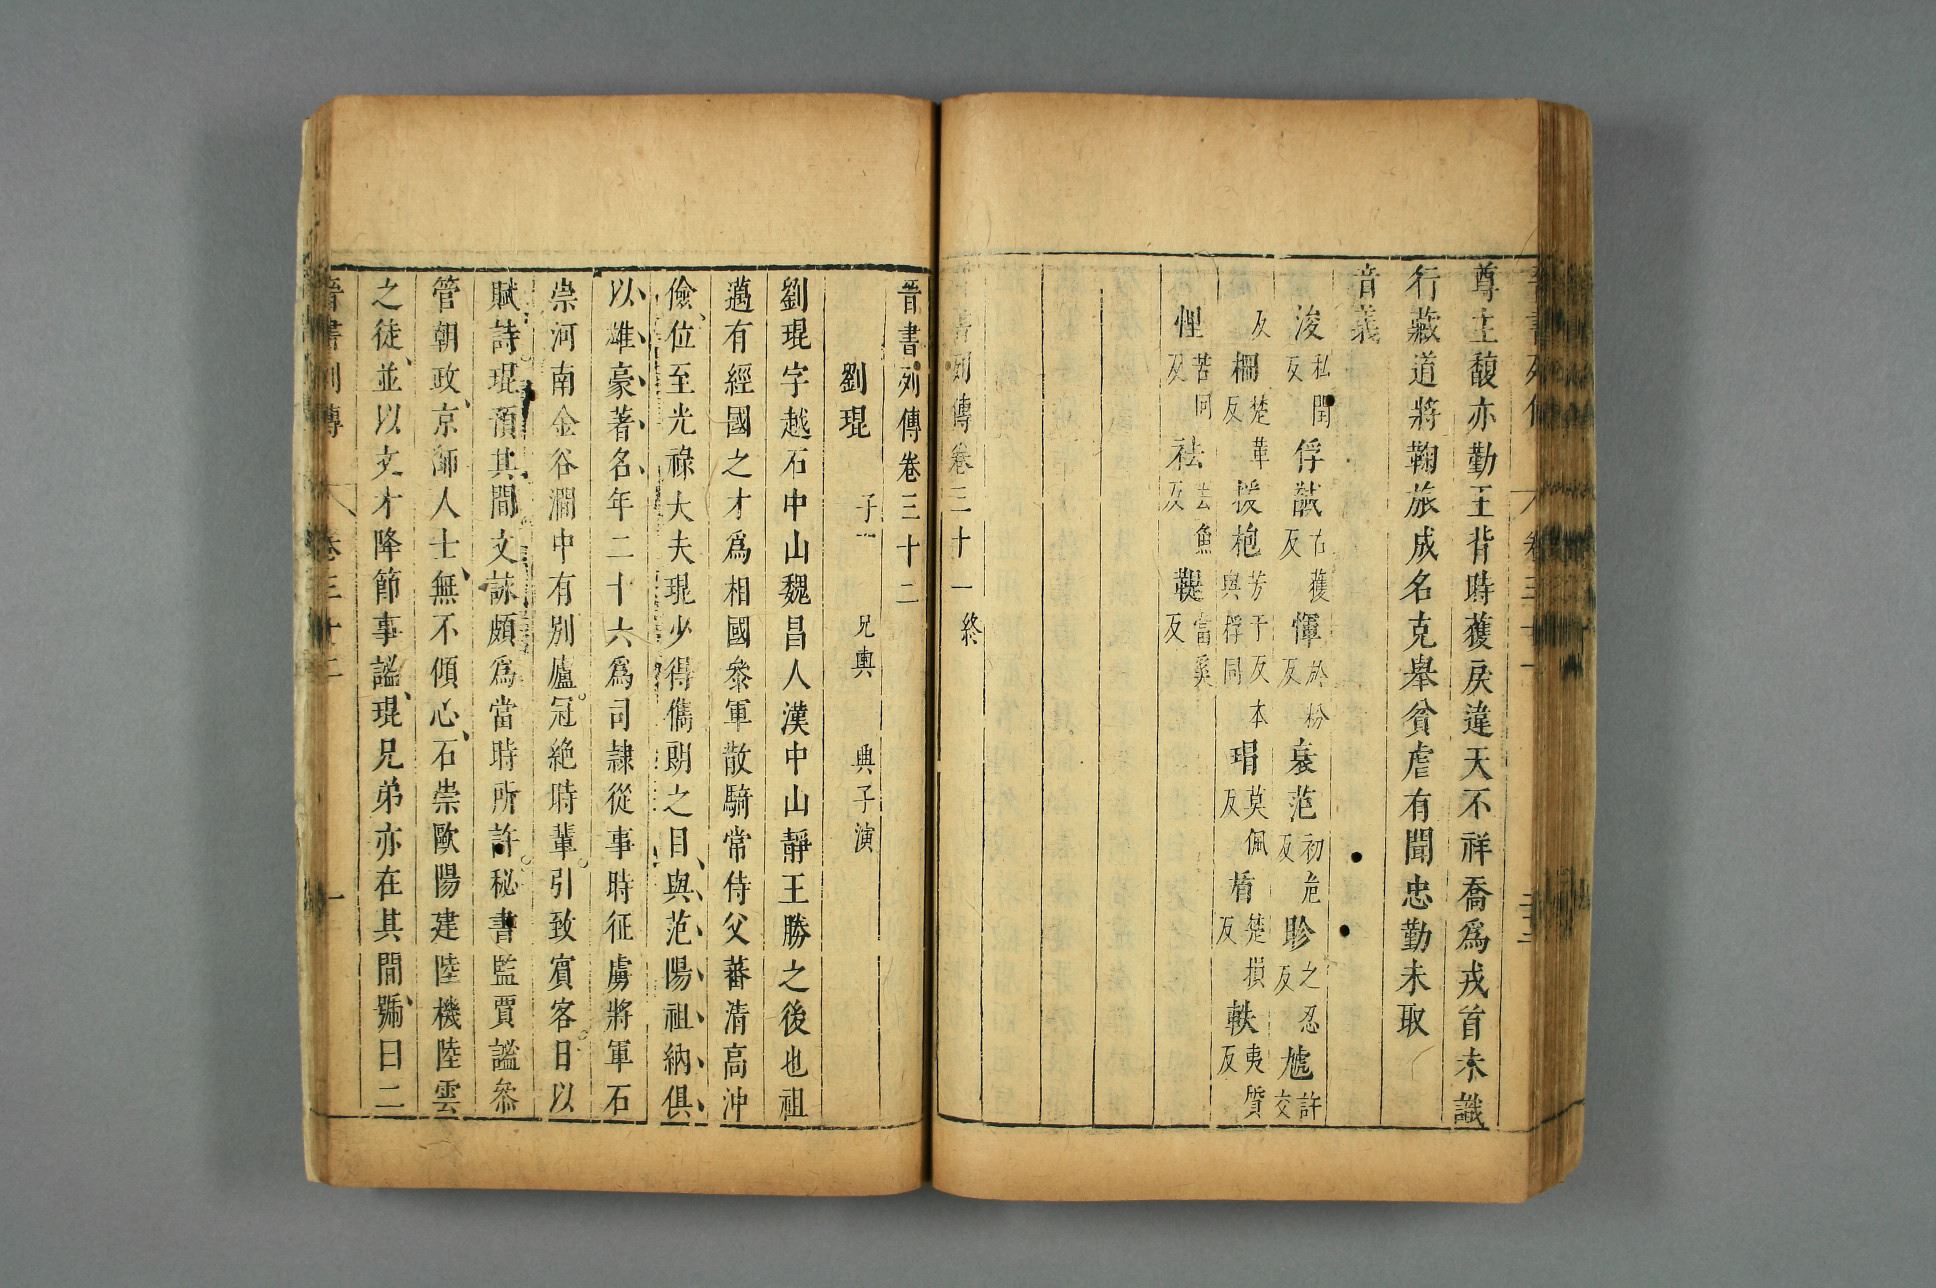 尊主馥亦勤王背時獲戾違天不祥喬爲戎首未識
行藏道將鞠旅成名克舉貪虐有聞忠勤未取
音義
浚私閏反 俘馘古獲反 惲於粉反 衰范初危反 眕之忍反 虓許交
反 欄楚革反 援枹芳于反本與桴同 瑁莫佩反 楯楚損反 軼夷質反
悝苦回反 祛去魚反 鞮當奚反
晉書列傳卷三十一終
晉書列傳卷三十二
劉琨 子 兄輿 輿子演
劉琨字越石中山魏昌人漢中山靜王勝之後也祖
邁有經國之才爲相國參軍散騎常侍父蕃清高沖
儉位至光祿大夫琨少得儁朗之目與范陽祖納俱
以雄豪著名年二十六爲司隸從事時征虜將軍石
崇河南金谷澗中有別廬冠絶時輩引致賓客日以
賦詩琨預其間文詠頗爲當時所許秘書監賈謐叅
管朝政京師人士無不傾心石崇歐陽建陸機陸雲
之徒並以文才降節事謐琨兄弟亦在其間號曰二
晉書列傳 卷三十二 一